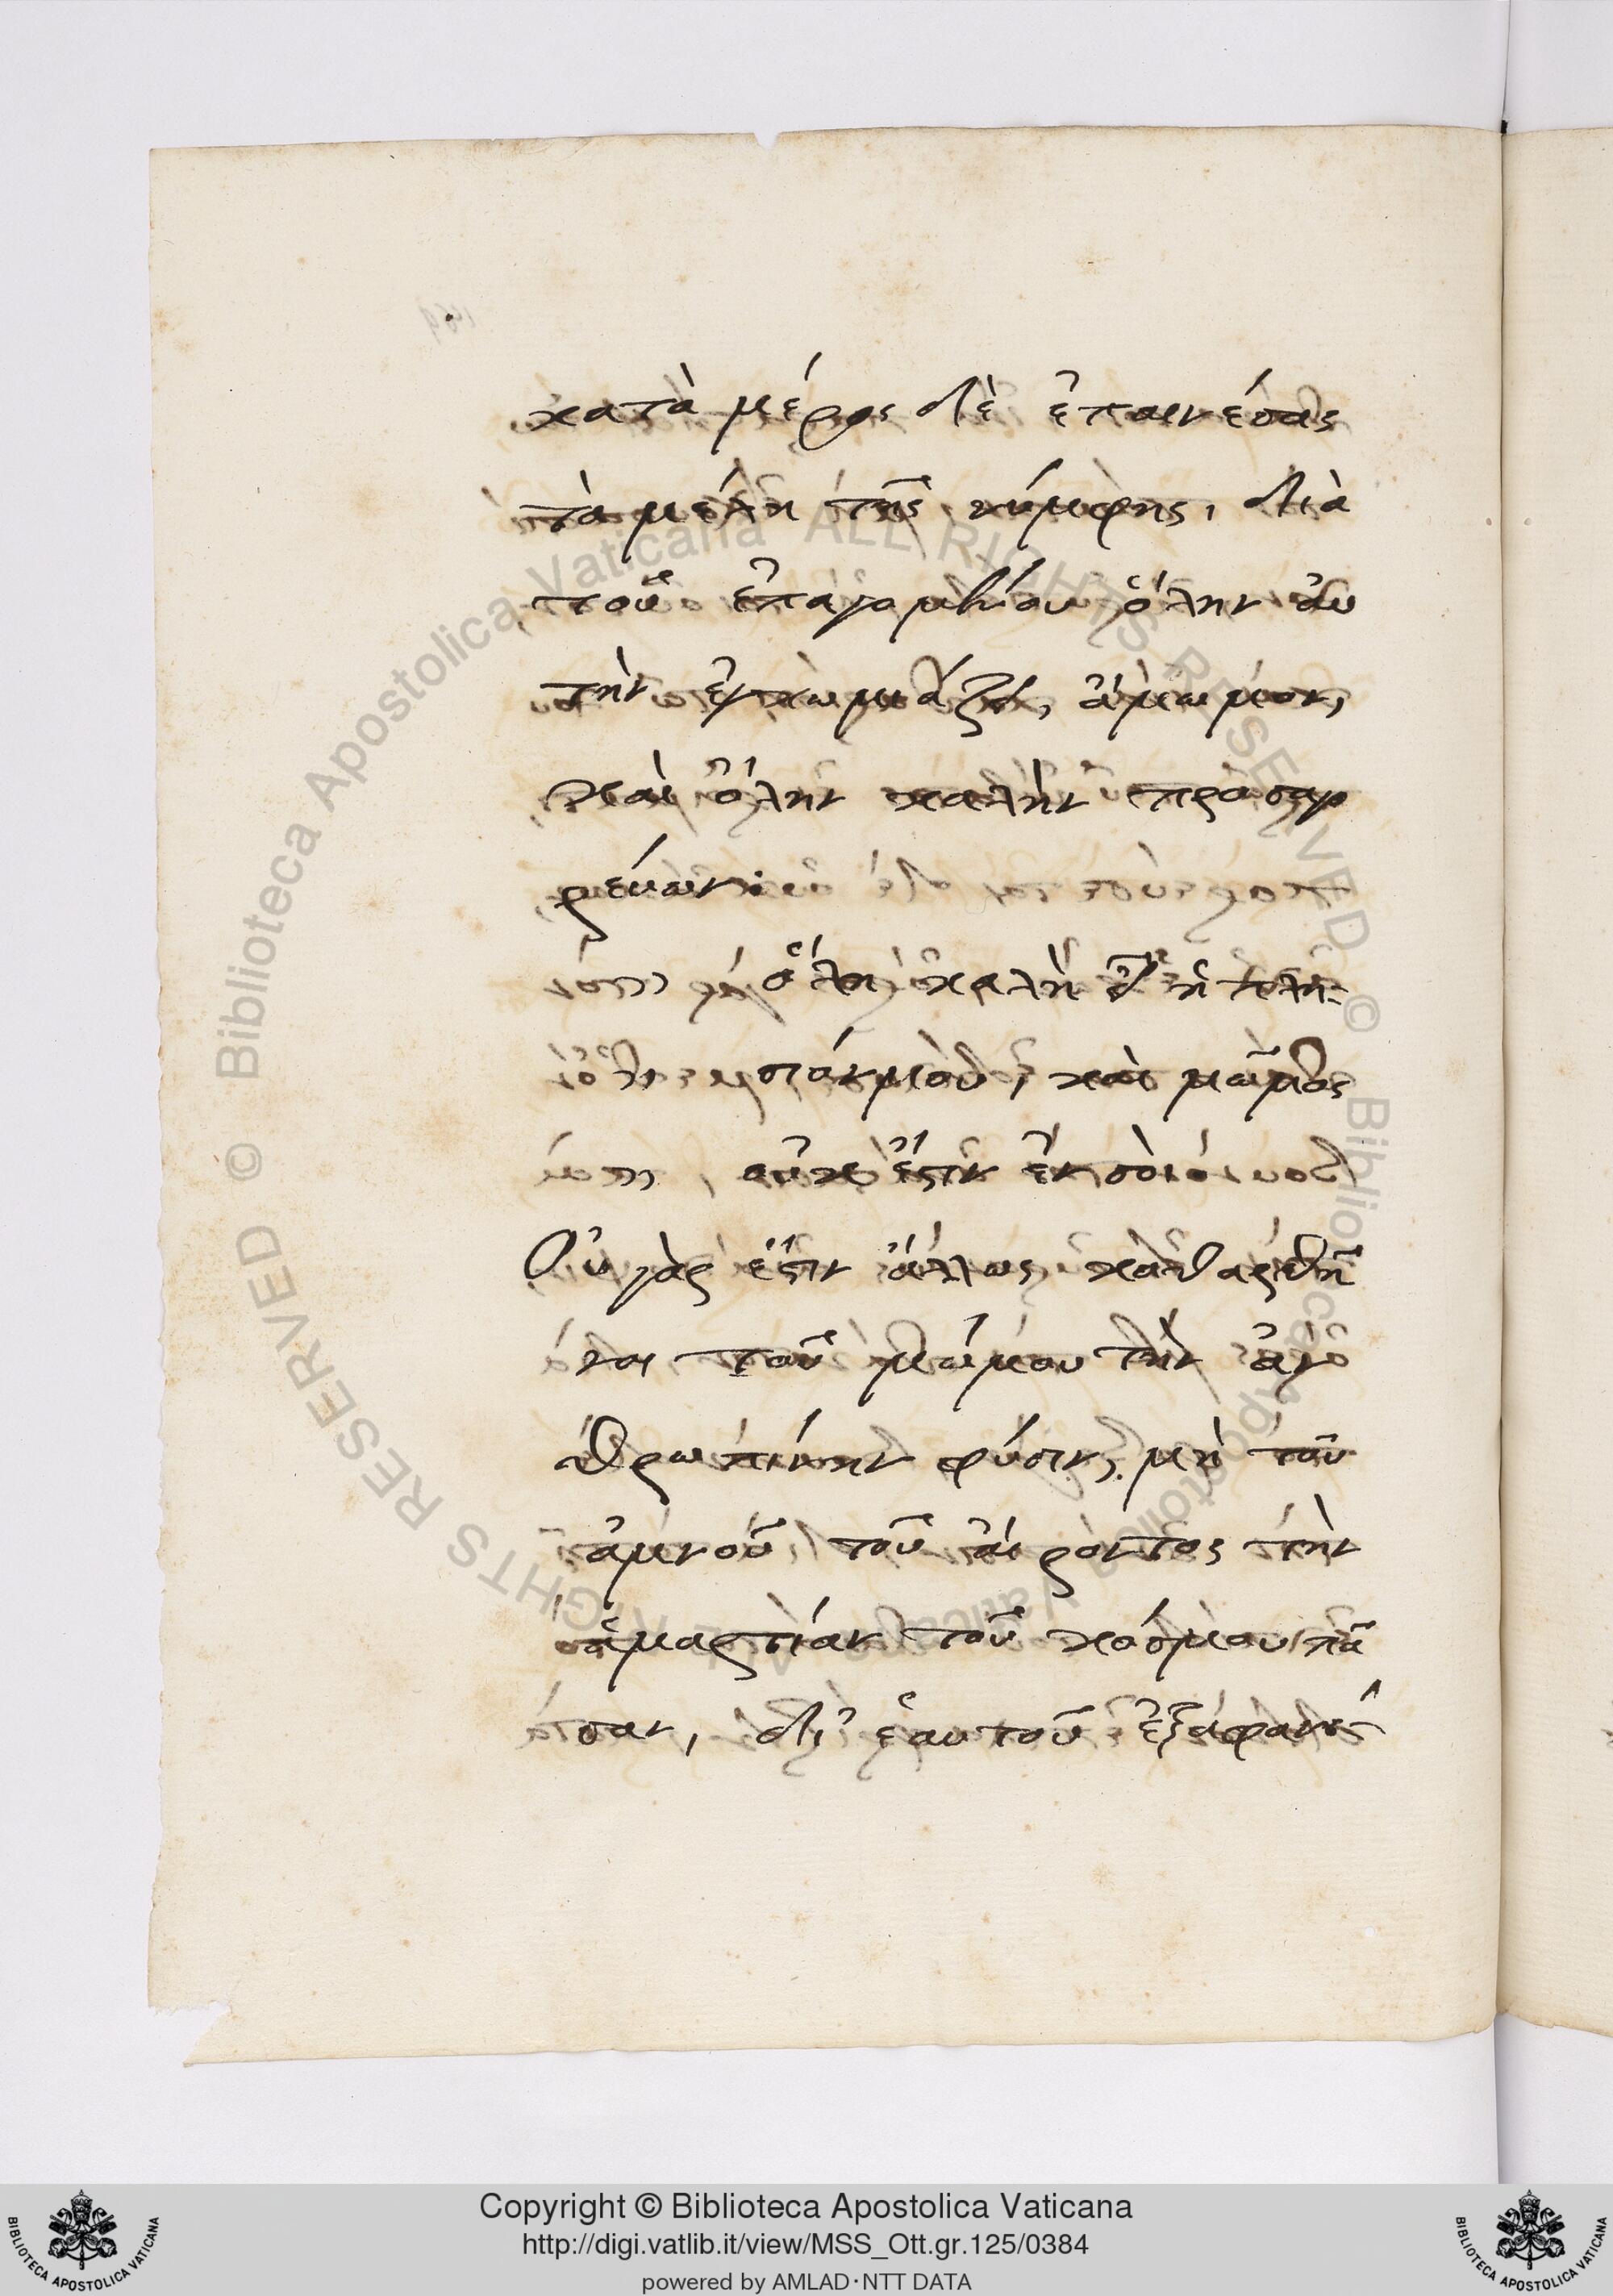 κατὰ μέρος δὲ ἐπαινέσας
τὰ μέλη τῆς νύμφης, διὰ
τοῦ ἐπαγομένου ὅλην αὐ
τὴν ἐγκωμιάζει, ἄμωμον,
καὶ ὅλην καλὴν προσαγο
ρεύων:
ὅλη καλὴ εἶ ἡ πλη
σίον μου, καὶ μῶμος
οὐκ ἔστιν ἐν σοί
Οὐ γὰρ ἔστιν ἄλλως καθαρθῆ
ναι τοῦ μώμου τὴν ἀν
θρωπίνην φύσιν, μὴ τοῦ
ἀμνοῦ τοῦ αἴροντος τὴν
ἁμαρτίαν τοῦ κόσμου πᾶ
σαν, δι' ἑαυτοῦ ἐξαφανί
Biblioteca Apostolica Vaticana ALL RIGHTS RESERVED © Biblioteca Apostolica Vaticana ALL RIGHTS RESERVED ©
Copyright © Biblioteca Apostolica Vaticana
http://digi.vatlib.it/view/MSS_Ott.gr.125/0384
powered by AMLAD·NTT DATA
BIBLIOTECA APOSTOLICA VATICANA
BIBLIOTECA APOSTOLICA VATICANA